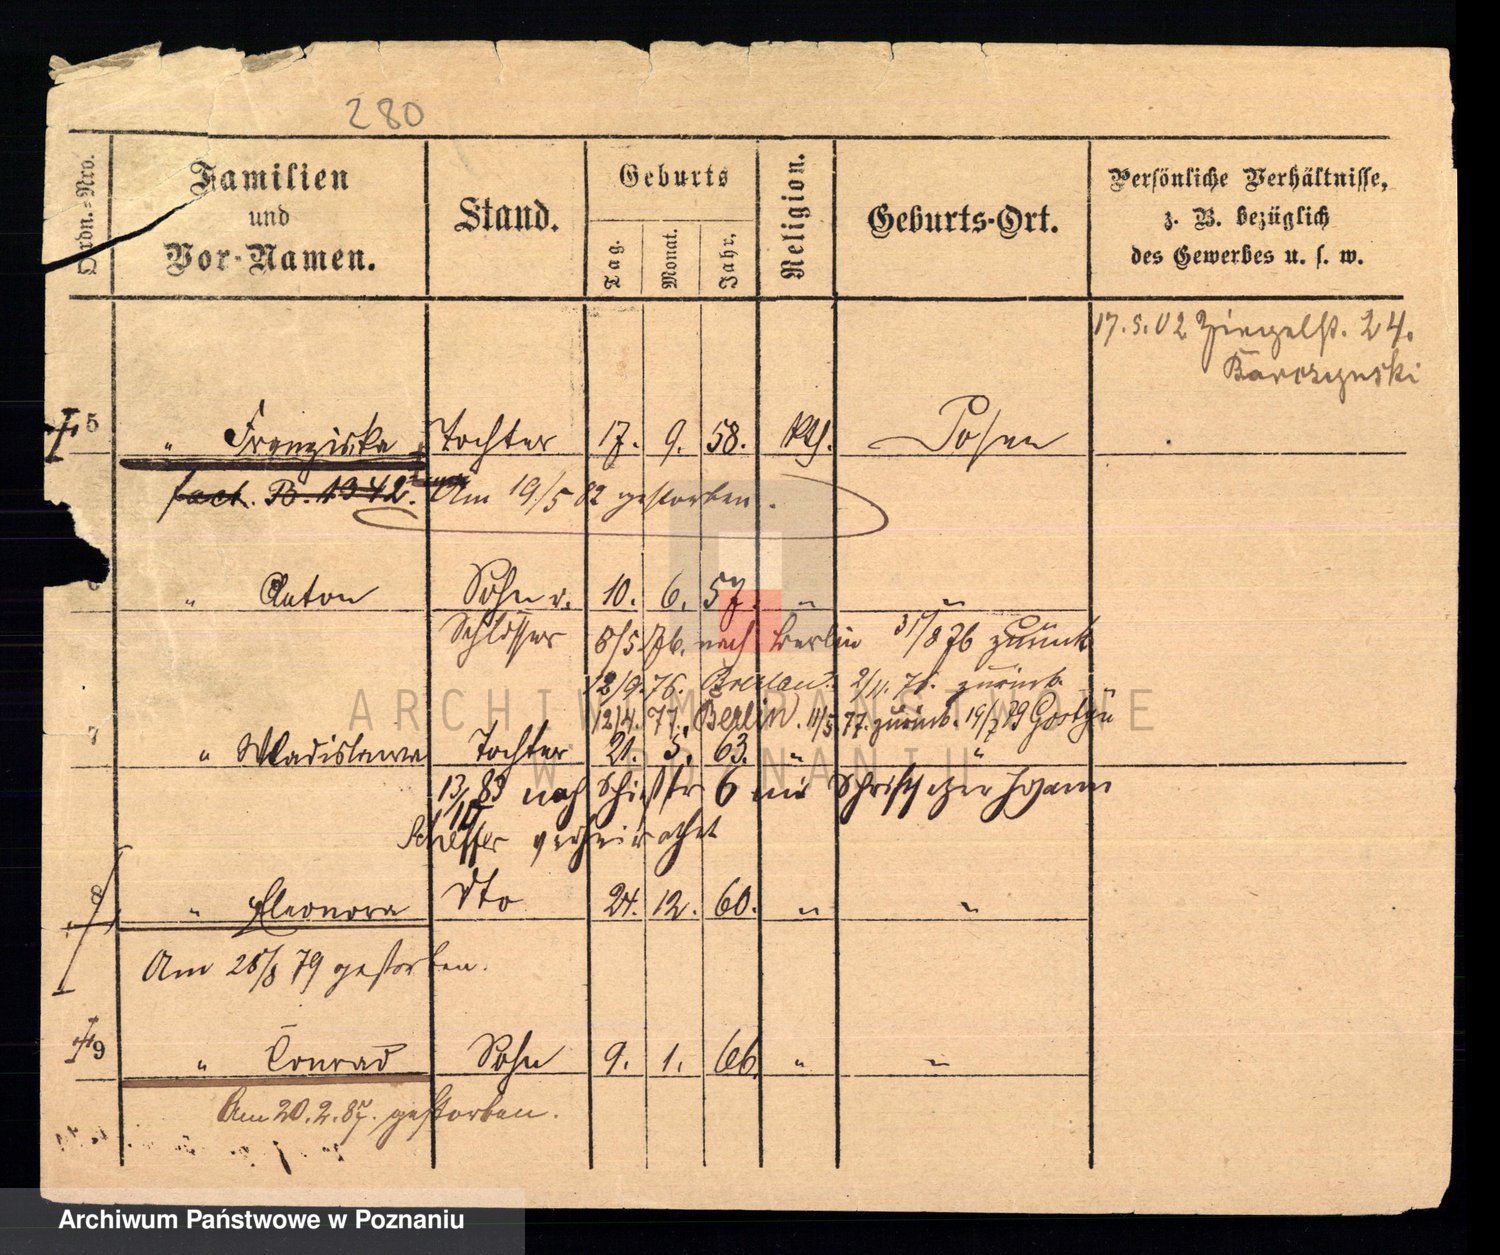 280
Ordn.-Nro.
Familien und Vor-Namen.
Stand.
Geburts
Tag. Monat. Jahr.
Religion.
Geburts-Ort.
Persönliche Verhältnisse, z. B. bezüglich des Gewerbes u. s. w.
17.5.02 Ziegelst. 24.
Barczynski
5 " Franziska Tochter 17. 9. 58. kth. Posen
fact. B. 1342. Am 19/5 82 gestorben.
6 " Anton Sohn u. 10. 6. 57. " "
Schlosser 8/5.76. nach Berlin 31/8 76 zurück
12/9.76. Breslau. 2/11.76. zurück.
12/4.77. Berlin. 11/5 77. zurück. 19/7 79 Gostyn
7 " Wladislawa Tochter 21. 5. 63. " "
13/10 83 nach Schießstr 6 mit Schriftsetzer Johann
verheirathet
8 " Eleonora dto 24. 12. 60. " "
Am 28/8 79 gestorben.
9 " Conrad Sohn 9. 1. 66. " "
Am 20.2.87. gestorben.
ARCHIWUM PAŃSTWOWE
W POZNANIU
Archiwum Państwowe w Poznaniu